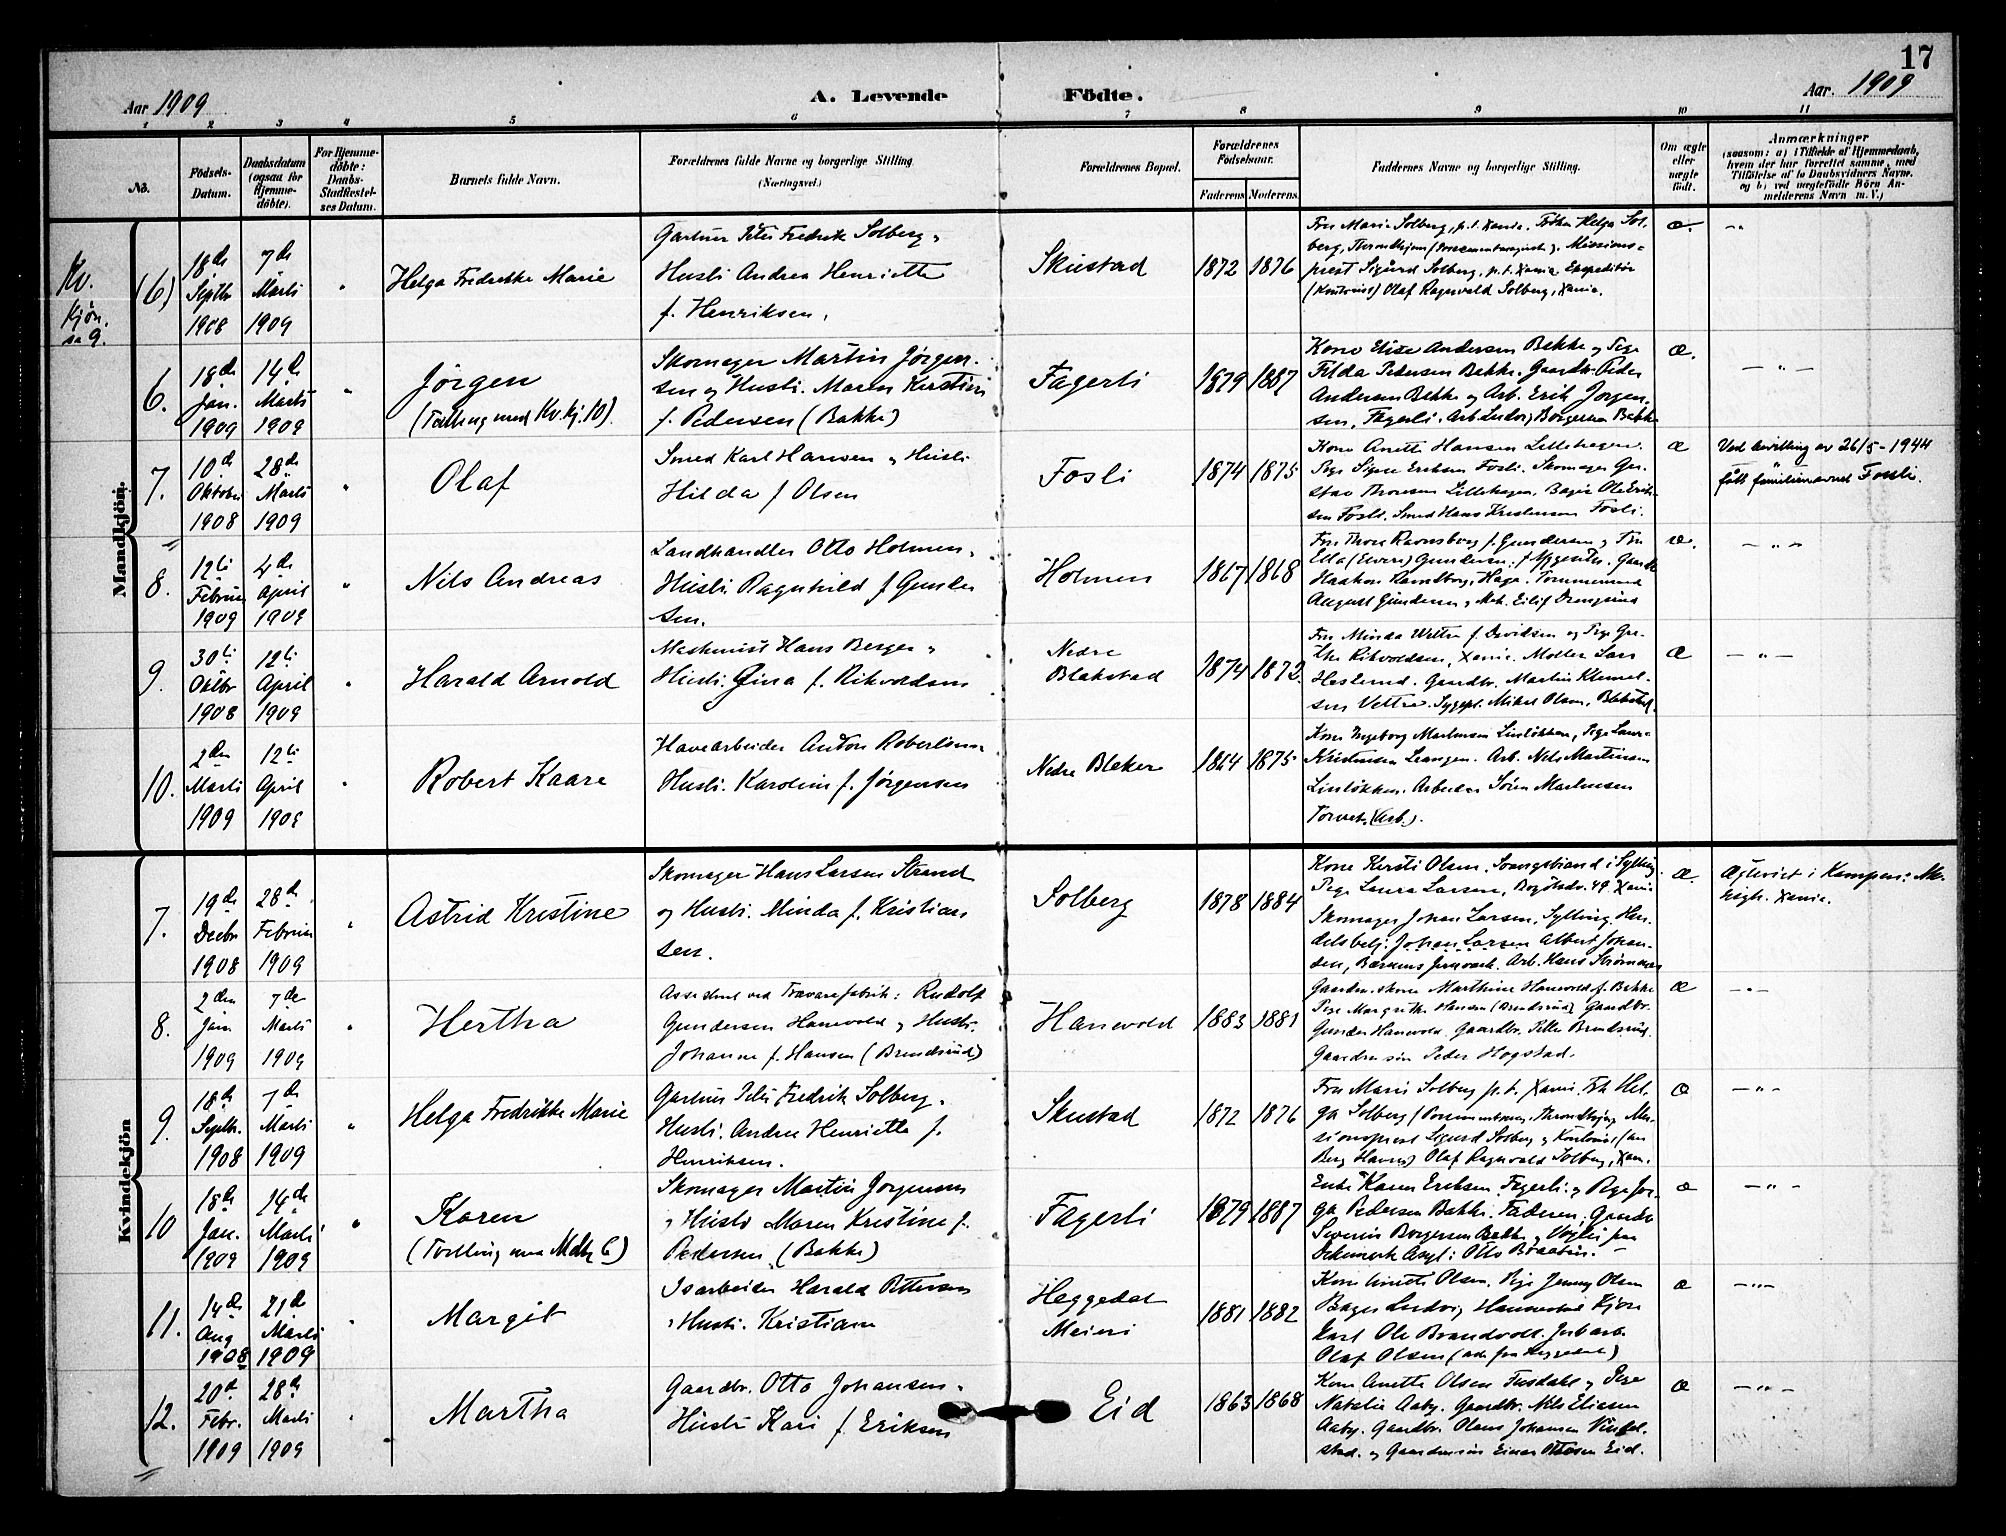 17
Aar 1909
A. Levende
Födte.
Aar. 1909
1 2 3 4 5 6 7 8 9 10 11
No.
Födsels-
Datum.
Daabsdatum
(ogsaa for
Hjemme-
döbte).
For Hjemme-
döbte:
Daabs-
Stadfæstel-
ses Datum.
Barnets fulde Navn.
Forældrenes fulde Navne og borgerlige Stilling.
(Næringsvei.)
Forældrenes Bopæl.
Forældrenes
Födselsaar.
Faderens
Moderens
Faddernes Navne og borgerlige Stilling.
Om ægte
eller
uægte
födt.
Anmærkninger
(saasom: a) i Tilfælde af Hjemmedaab,
hvem der har forrettet samme, med
Tilföielse af to Daabsvidners Navne.
og b) ved uægtefödte Börn An-
melderens Navn m. V.)
Kv.
Kjön.
se 9.
Mandkjön.
(6)
18de
Septbr
1908
7de
Marts
1909
Helga Fredrikke Marie
Gartner Peter Fredrik Solberg,
Hustr. Andrea Henriette
f. Henriksen.
Skustad
1872
1876
Fru Marie Solberg, p.t. Xania. Frøken Helga Sol-
berg, Throndhjem
prest Sigurd Solberg, p.t. Xania Ekspeditør
(Kontorist) Olaf Ragnvald Solberg, Xania.
æ.
6.
18de
Jan.
1909
14de
Marts
1909
Jörgen
(Tvilling med Kv. kj. 10).
Skomager Martin Jørgen-
sen og Hustr. Maren Kirstine
f. Pedersen (Bakke)
Fagerli
1879
1887
Kone Elise Andersen Bakke og Pige
Tilda Pedersen Bakke. Gaardbr. Peder
Andersen Bakke og Arb. Erik Jørgen-
sen, Fagerli. Arb. Ludvig Borgersen Bakke
æ.
7.
10de
Oktober
1908
28de
Marts
1909
Olaf
Smed Karl Hansen og Hustr.
Hilda f. Olsen
Fosli
1874
1875
Kone Anette Hansen Lillehagen.
Pige Signe Eriksen Fosli. Skomager Gu-
stav Thoresen Lillehagen. Bager Ole Erik-
sen Fosli. Smed Hans Kristensen Fosli.
æ
Ved bevilling av 26/5-1944
fått familienavnet Fossli.
8.
12te
Februar
1909
4de
April
1909
Nils Andreas
Landhandler Otto Holmen,
Hustr. Ragnhild f. Gunder
sen.
Holmen
1867
1868
Haakon Ravnsborg, Haga.
August Gundersen
æ.
9.
30te
Oktbr
1908
12te
April
1909
Harald Arnold
Maskinist Hans Berger,
Hustr. Gina f. Rikvoldsen
Nedre
Blakstad
1874
1872.
Fru Minda Vettre f. Davidsen og Pige Gre-
the Rikvoldsen, Xania. Møller Lars
Heslund. Gaardbr. Martin Klemet-
sen Vettre. Sygepl. Mikal Olsen, Blakstad.
æ
10.
2den
Marts
1909
12te
April
1909
Robert Kaare
Havearbeider Anton Robertsen
Hustr. Karoline f. Jørgensen
Nedre Bleker
1864
1875
Kone Ingeborg Martinsen Linløkken, Pige Laura
Kristensen Leangen. Arb. Nils Martinsen
Linløkken. Arbeider Søren Martinsen
Torvet. (Arb.).
Kvindekjön
7.
19de
Decbr
1908
28de
Februar
1909
Astrid Kristine
Skomager Hans Larsen Strand
og Hustr. Minda f. Kristian
sen.
Solberg
1878
1884
Kone Kersti Olsen, Svangstrand i Sylling
Pige Laura Larsen, Bogstadv. 49 Xania
Skomager Johan Larsen, Sylling. Han-
delsbetj. Johan Larsen Albert Johan-
sen, Bærums Jernværk. Arb. Hans Strømnæs
æ.
Ægteviet i Kampen: Me-
nigh. Xania.
8.
2den
Jan.
1909
7de
Marts
1909
Hertha
Assistent ved Trævarefabrik: Rudolf
Gundersen Hanevold og Hustr.
Johanne f. Hansen (Brendsrud)
Hanevold
1883
1881
Gaardm.skone Marthine Hanevold f. Bakke
Pige Margrethe Hansen (Brendsrud) Gaardbr.
Gunder Hanevold. Gaardbr. Peter Brendsrud.
Gaardmsøn Peder Hogstad.
æ
9.
18de
Septbr.
1908
7de
Marts
1909
Helga Fredrikke Marie
Gartner Peter Fredrik Solberg.
Hustr. Andrea Henriette f.
Henriksen.
Skustad
1872
1876
Fru Marie Solberg p.t. Xania. Frk Hel-
ga Solberg Throndhjem Mis-
sionsprest Sigurd Solberg og Kontorist
Olaf Ragnvald Solberg, Xan.
æ
10
18de
Jan.
1909
14de
Marts
1909
Karen
(Tvilling med Mdk 6)
Skomager Martin Jørgensen
og Hustr Maren Kristine f.
Pedersen (Bakke)
Fagerli
1879
1887
Enke Karen Eriksen, Fagerli og Pige Jør-
ga Pedersen Bakke. Faderen. Gaardbr
Severin Borgersen Bakke og Vogter paa
Dikemark Asyl: Otto Braaten.
æ
11.
14de
Aug
1908
21de
Marts
1909
Margit
Isarbeider Harald Pettersen
Hustr. Kristiane
Heggedal
Meieri
1881
1882
Kone Anette Olsen. Pige Jenny Olsen
Bager Ludvig
Karl Ole Brandvold. Jernb.arb.
Olaf Olsen (alle fra Heggedal)
æ
12.
20de
Febr.
1909
28de
Marts
1909
Martha
Gaardbr. Otto Johansen,
Hustr Kari f. Eriksen
Eid
1863
1868
Kone Anette Olsen Fusdal og Pige
Natalia Aaby. Gaardbr. Nils Eliasen
Aaby. Gaardbr. Olaus Johansen
stad. og Gaardmsøn Einar Ottosen Eid.
æ